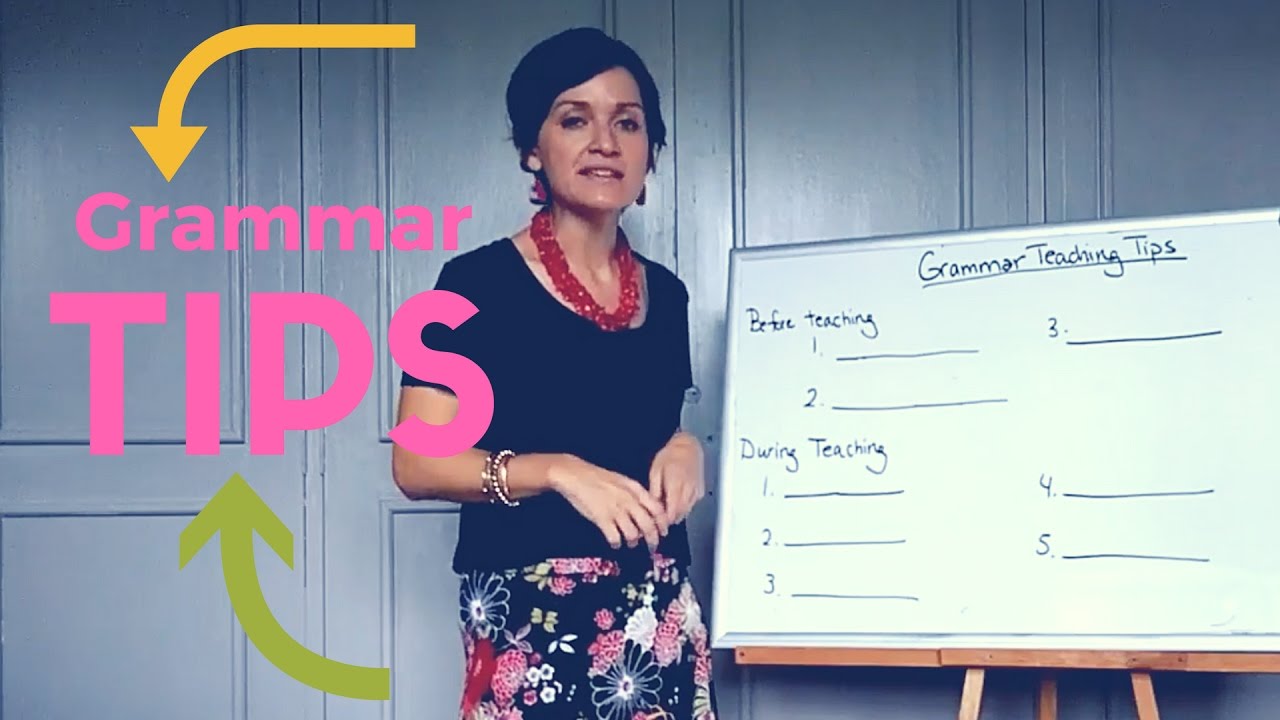 Grammar
TIPS
Grammar Teaching Tips
Before teaching
1.
2.
3.
During Teaching
1.
2.
3.
4.
5.